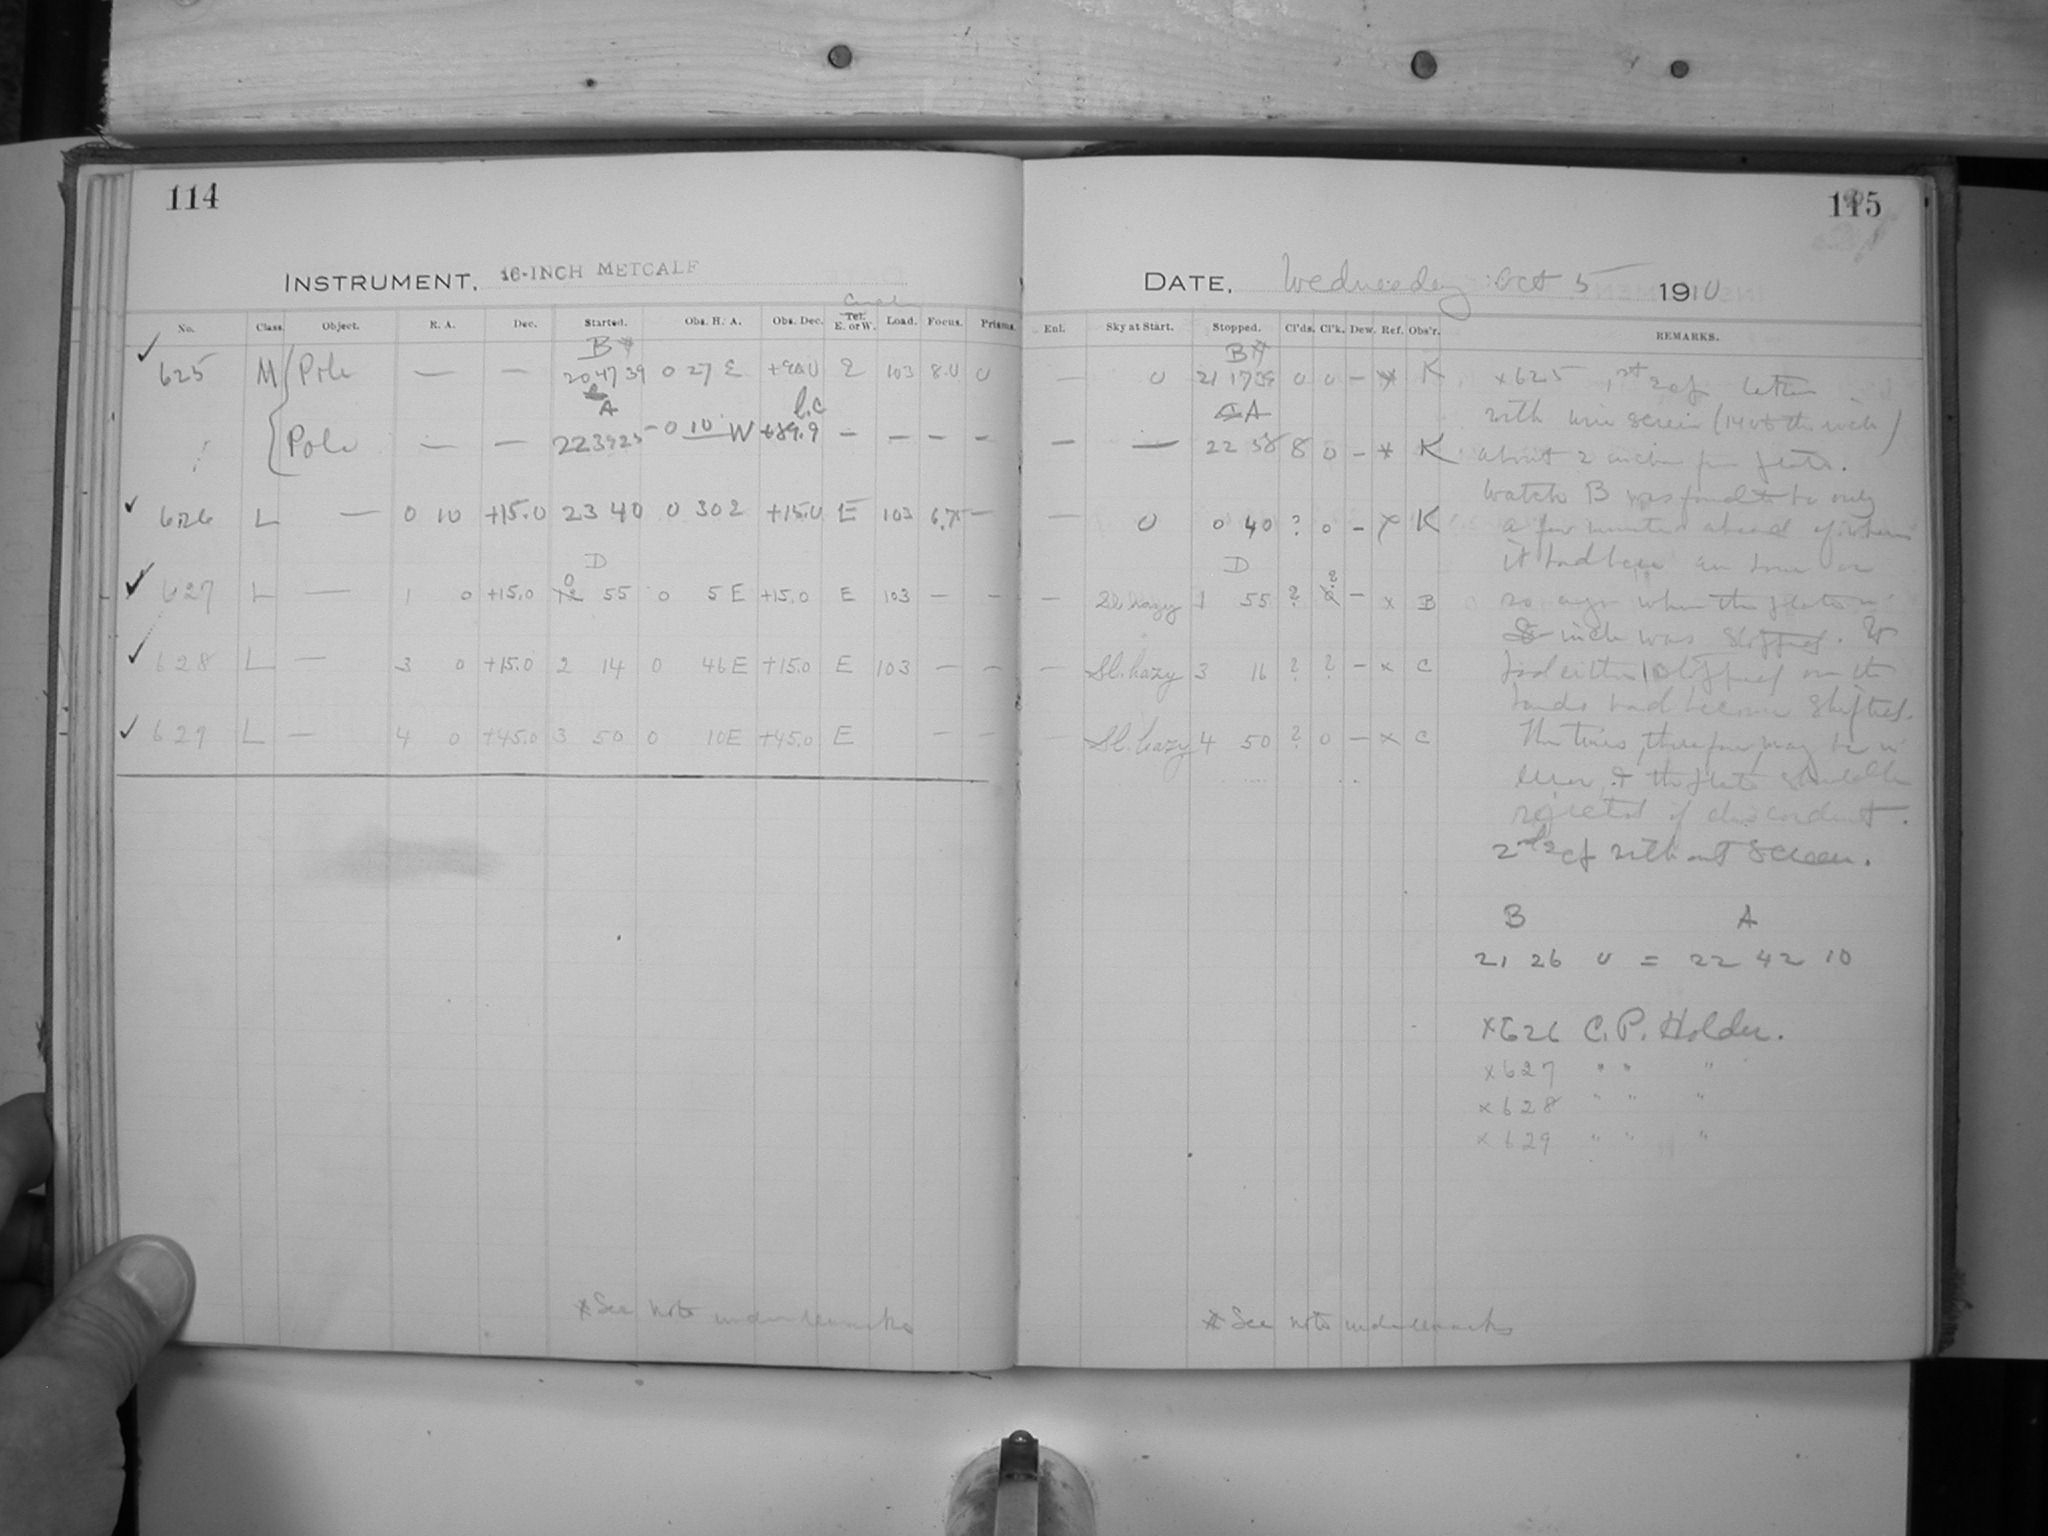 114
INSTRUMENT, 16-INCH METCALF
No. Class. Object. R. A. Dec. Started. Obs. H. A. Obs. Dec. Tel. E. or W. Load. Focus. Prisms.
B*
625 M Pole — — 20 47 39 0 27 E +90.0 E 103 8.0 0
A
Pole — — 22 39 25 — 0 10 W +89.9 — — — —
626 L — 0 10 +15.0 23 40 0 30 E +15.0 E 103 6.75 —
D
627 L — 1 0 +15.0 0 55 0 5 E +15.0 E 103 — —
628 L — 3 0 +15.0 2 14 0 46 E +15.0 E 103 — —
629 L — 4 0 +45.0 3 50 0 10 E +45.0 E — —
* See note under remarks
115
DATE, Wednesday Oct 5 1910
Enl. Sky at Start. Stopped. Cl'ds. Cl'k. Dew. Ref. Obs'r. REMARKS.
B*
— 0 21 17 39 0 0 — * K
A
— — 22 58 8 0 — * K
— 0 0 40 ? 0 — x K
D
— Sl. hazy 1 55 ? ? — x B
— Sl. hazy 3 16 ? ? — x C
— Sl. hazy 4 50 ? 0 — x C
x625 1st
with wire screen (14 to the inch)
about 2 inches from plate.
Watch B was found to be only
a few minutes ahead of where
it had been an hour or
so ago when the plate
8 inch was stopped.
had either stopped or the
hands had become shifted.
The times, therefore, may be in
error, & the plate should be
rejected if discordant.
2nd without screen.
B A
21 26 0 = 22 42 10
x626 C. P. Holder.
x627 " " "
x628 " " "
x629 " " "
* See note under remarks